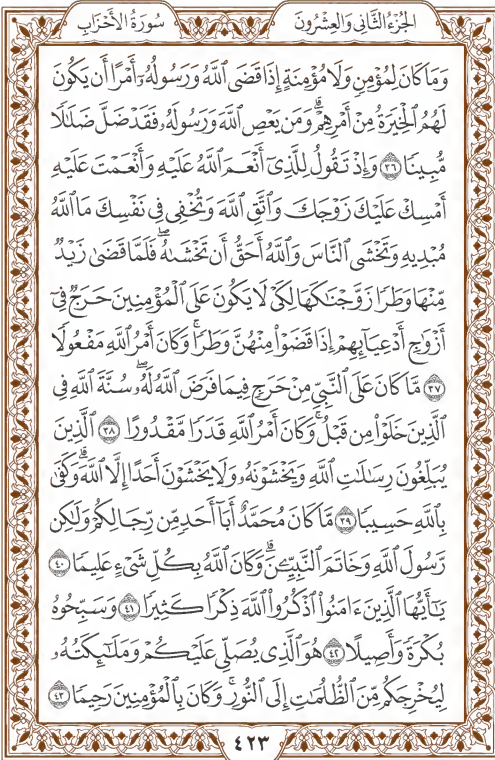 الجُزْءُ الثَّانِي وَالعِشْرُونَ سُورَةُ الأَحْزَابِ
وَمَا كَانَ لِمُؤْمِنٍ وَلَا مُؤْمِنَةٍ إِذَا قَضَى ٱللَّهُ وَرَسُولُهُۥٓ أَمْرًا أَن يَكُونَ
لَهُمُ ٱلْخِيَرَةُ مِنْ أَمْرِهِمْۗ وَمَن يَعْصِ ٱللَّهَ وَرَسُولَهُۥ فَقَدْ ضَلَّ ضَلَٰلًا
مُّبِينًا ٣٦ وَإِذْ تَقُولُ لِلَّذِىٓ أَنْعَمَ ٱللَّهُ عَلَيْهِ وَأَنْعَمْتَ عَلَيْهِ
أَمْسِكْ عَلَيْكَ زَوْجَكَ وَٱتَّقِ ٱللَّهَ وَتُخْفِى فِى نَفْسِكَ مَا ٱللَّهُ
مُبْدِيهِ وَتَخْشَى ٱلنَّاسَ وَٱللَّهُ أَحَقُّ أَن تَخْشَىٰهُۖ فَلَمَّا قَضَىٰ زَيْدٌ
مِّنْهَا وَطَرًا زَوَّجْنَٰكَهَا لِكَىْ لَا يَكُونَ عَلَى ٱلْمُؤْمِنِينَ حَرَجٌ فِىٓ
أَزْوَٰجِ أَدْعِيَآئِهِمْ إِذَا قَضَوْا۟ مِنْهُنَّ وَطَرًاۚ وَكَانَ أَمْرُ ٱللَّهِ مَفْعُولًا
٣٧ مَّا كَانَ عَلَى ٱلنَّبِىِّ مِنْ حَرَجٍ فِيمَا فَرَضَ ٱللَّهُ لَهُۥۖ سُنَّةَ ٱللَّهِ فِى
ٱلَّذِينَ خَلَوْا۟ مِن قَبْلُۚ وَكَانَ أَمْرُ ٱللَّهِ قَدَرًا مَّقْدُورًا ٣٨ ٱلَّذِينَ
يُبَلِّغُونَ رِسَٰلَٰتِ ٱللَّهِ وَيَخْشَوْنَهُۥ وَلَا يَخْشَوْنَ أَحَدًا إِلَّا ٱللَّهَۗ وَكَفَىٰ
بِٱللَّهِ حَسِيبًا ٣٩ مَّا كَانَ مُحَمَّدٌ أَبَآ أَحَدٍ مِّن رِّجَالِكُمْ وَلَٰكِن
رَّسُولَ ٱللَّهِ وَخَاتَمَ ٱلنَّبِيِّـۧنَۗ وَكَانَ ٱللَّهُ بِكُلِّ شَىْءٍ عَلِيمًا ٤٠
يَٰٓأَيُّهَا ٱلَّذِينَ ءَامَنُوا۟ ٱذْكُرُوا۟ ٱللَّهَ ذِكْرًا كَثِيرًا ٤١ وَسَبِّحُوهُ
بُكْرَةً وَأَصِيلًا ٤٢ هُوَ ٱلَّذِى يُصَلِّى عَلَيْكُمْ وَمَلَٰٓئِكَتُهُۥ
لِيُخْرِجَكُم مِّنَ ٱلظُّلُمَٰتِ إِلَى ٱلنُّورِۚ وَكَانَ بِٱلْمُؤْمِنِينَ رَحِيمًا ٤٣
٤٢٣